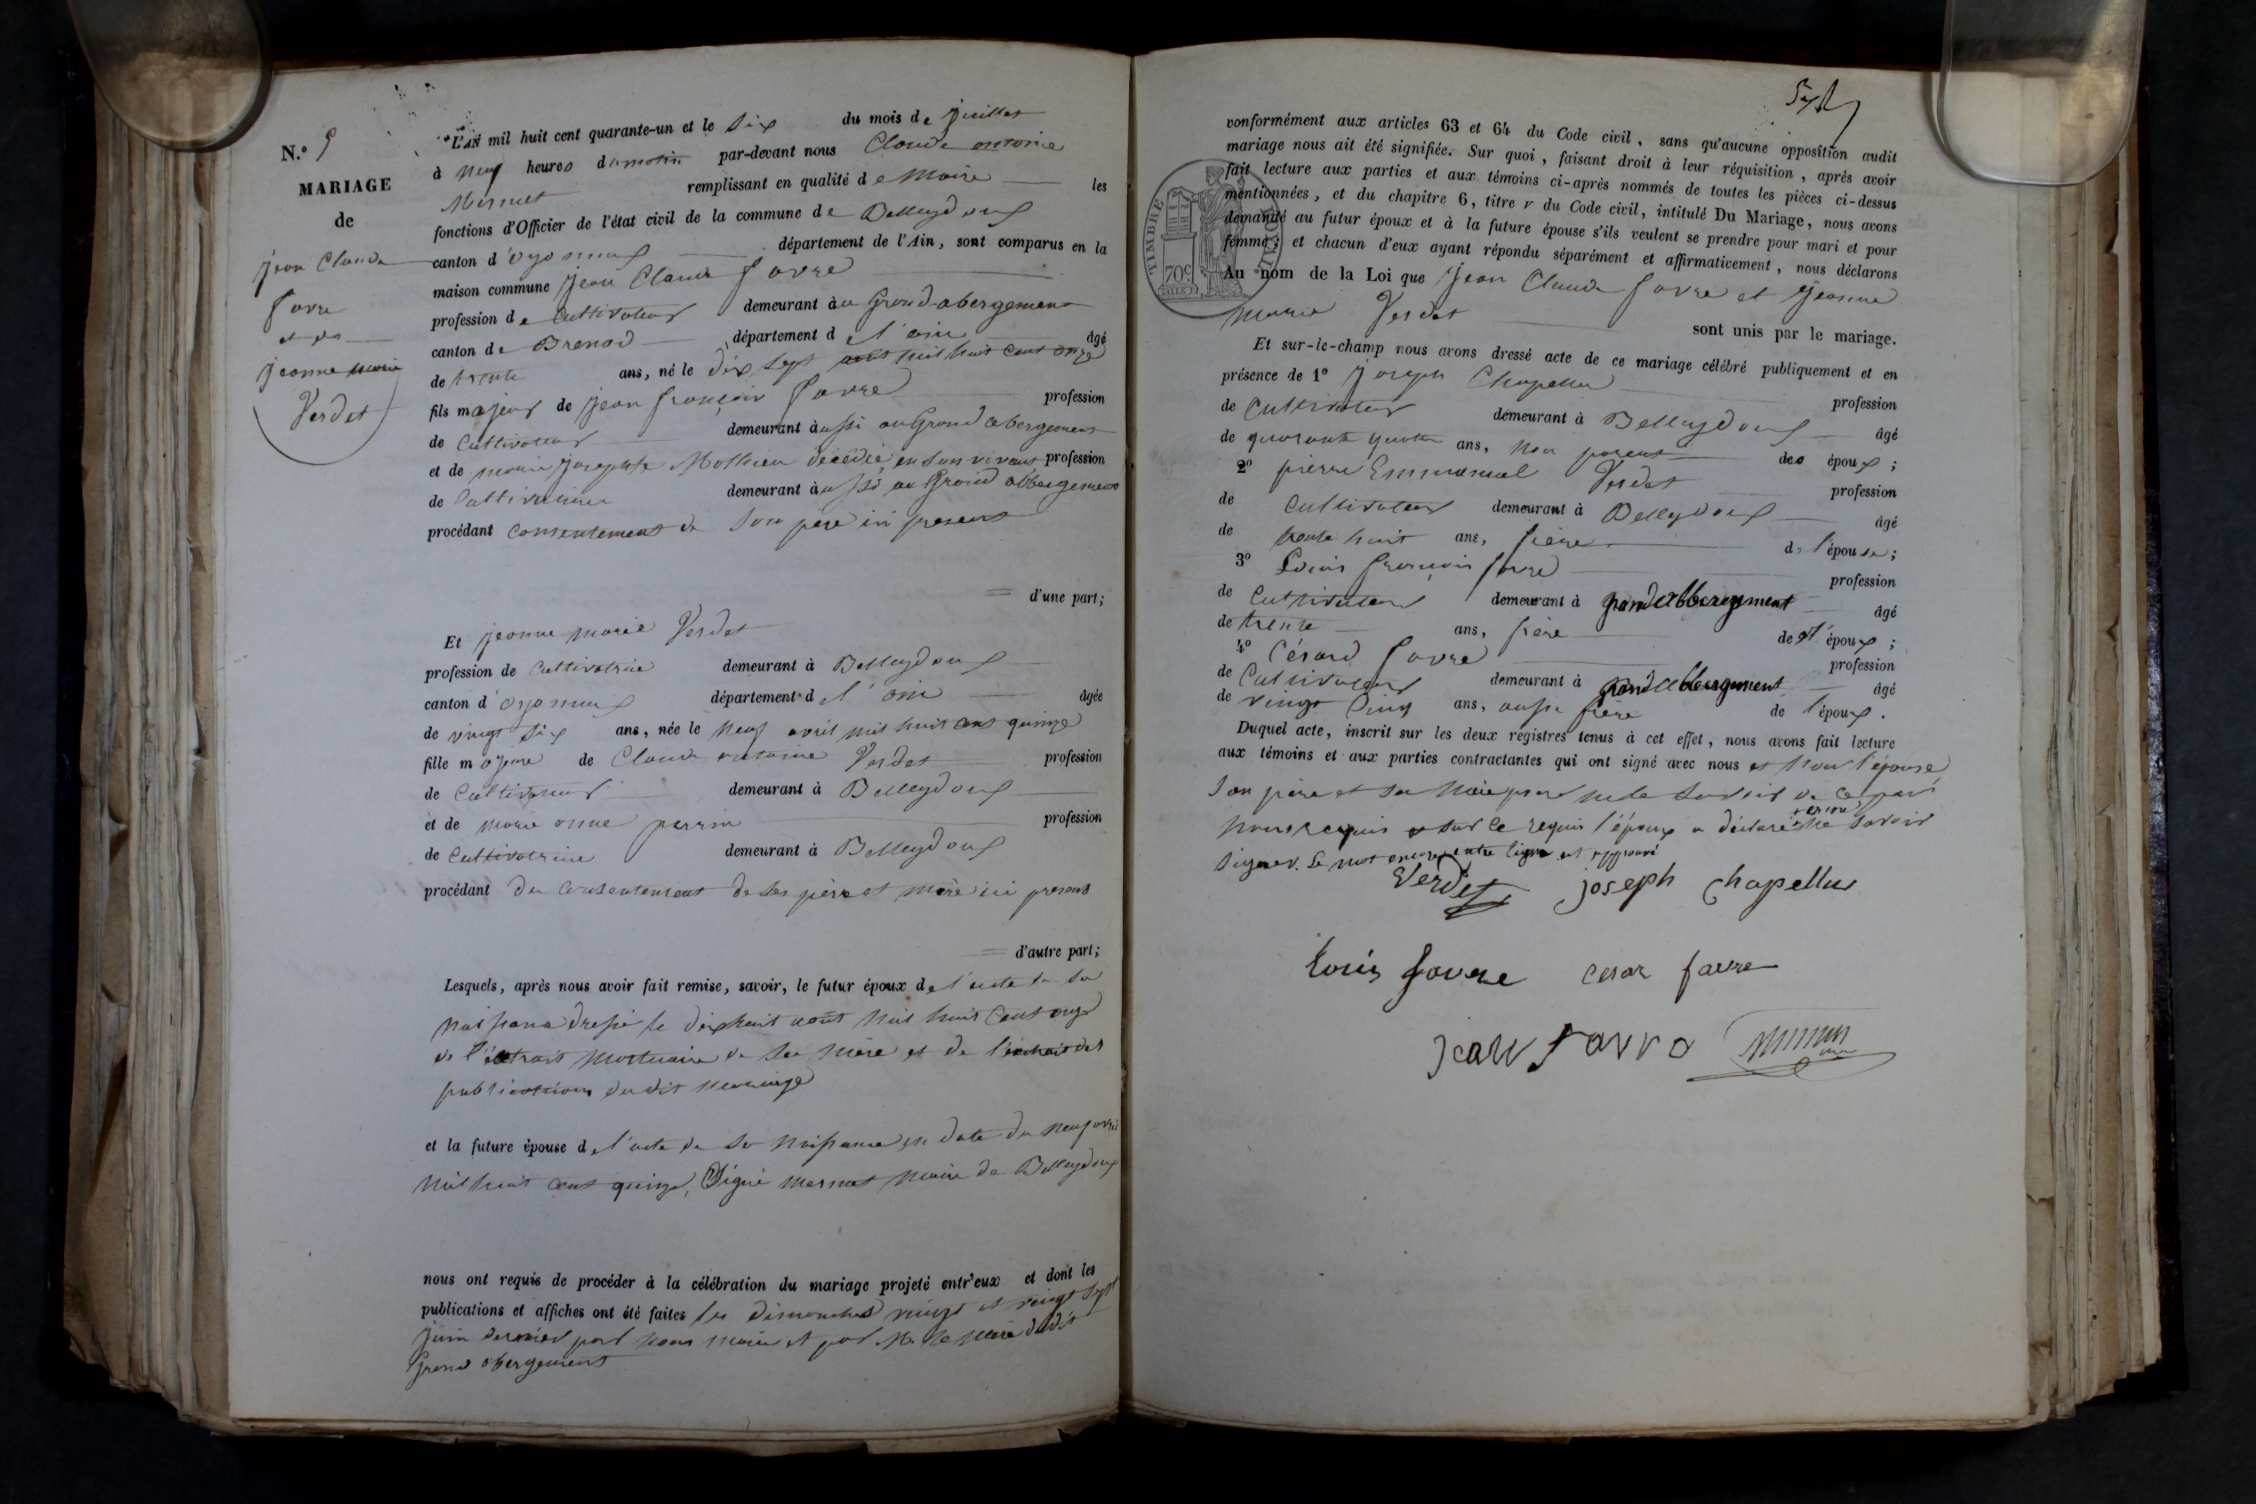 N.º 5
MARIAGE
de
jean Claude
favre
et de
jeanne marie
Verdet
L'AN mil huit cent quarante-un et le six du mois de juillet
à neuf heures du matin par-devant nous Claude antoine
Mermet remplissant en qualité de Maire les
fonctions d'Officier de l'état civil de la commune de Belleydoux
canton d'oyonnax département de l'Ain, sont comparus en la
maison commune jean Claude favre
profession de Cultivateur demeurant au Grand abergement
canton de Brenod département de l'ain âgé
de trente ans, né le dix sept août mil huit cent onze
fils majeur de jean françois favre profession
de Cultivateur demeurant aussi au Grand abergement
et de marie josephte Mathieu décédée en son vivant profession
de Cultivatrice demeurant aussi au Grand abbergement
procédant consentement de son père ici present
d'une part;
Et jeanne marie Verdet
profession de Cultivatrice demeurant à Belleydoux
canton d'oyonnax département de l'ain âgée
de vingt six ans, née le neuf avril mil huit cent quinze
fille majeure de Claude antoine Verdet profession
de Cultivateur demeurant à Belleydoux
et de marie anne perrin profession
de Cultivatrice demeurant à Belleydoux
procédant du consentement de ses père et mère ici presents
d'autre part;
Lesquels, après nous avoir fait remise, savoir, le futur époux de l'acte de sa
naissance dressé le dix huit août mil huit cent onze
de l'extrait mortuaire de sa mère et de l'extrait des
publications dudit mariage
et la future épouse de l'acte de sa naissance en date du neuf avril
mil huit cent quinze, Signé mermet maire de Belleydoux
nous ont requis de procéder à la célébration du mariage projeté entr'eux et dont les
publications et affiches ont été faites les dimanches vingt et vingt sept
juin dernier par nous maire et par Mr le maire dudit
Grand abergement
conformément aux articles 63 et 64 du Code civil, sans qu'aucune opposition audit
mariage nous ait été signifiée. Sur quoi, faisant droit à leur réquisition, après avoir
fait lecture aux parties et aux témoins ci-après nommés de toutes les pièces ci-dessus
mentionnées, et du chapitre 6, titre v du Code civil, intitulé Du Mariage, nous avons
demandé au futur époux et à la future épouse s'ils veulent se prendre pour mari et pour
femme; et chacun d'eux ayant répondu séparément et affirmativement, nous déclarons
Au nom de la Loi que jean Claude favre et jeanne
marie Verdet sont unis par le mariage.
TIMBRE ROYAL
70c
Et sur-le-champ nous avons dressé acte de ce mariage célébré publiquement et en
présence de 1º joseph Chapellu profession
de Cultivateur demeurant à Belleydoux âgé
de quarante quatre ans, non parent des époux;
2º pierre Emmanuel Verdet profession
de Cultivateur demeurant à Belleydoux âgé
de trente huit ans, frère de l'épouse;
3º Louis françois favre profession
de Cultivateur demeurant à grand abbergement âgé
de trente ans, frère de l'époux;
4º César favre profession
de Cultivateur demeurant à grand abbergement âgé
de vingt Cinq ans, aussi frère de l'époux.
Duquel acte, inscrit sur les deux régistres tenus à cet effet, nous avons fait lecture
aux témoins et aux parties contractantes qui ont signé avec nous et non l'épouse
son père et sa mère pour ne le savoir de ce par
nous requis et sur ce requis l'époux a déclaré encore ne savoir
signer. Le mot encore entre ligne est approuvé
Verdet joseph Chapellu
Louis favre cesar favre
jean favre Mermet